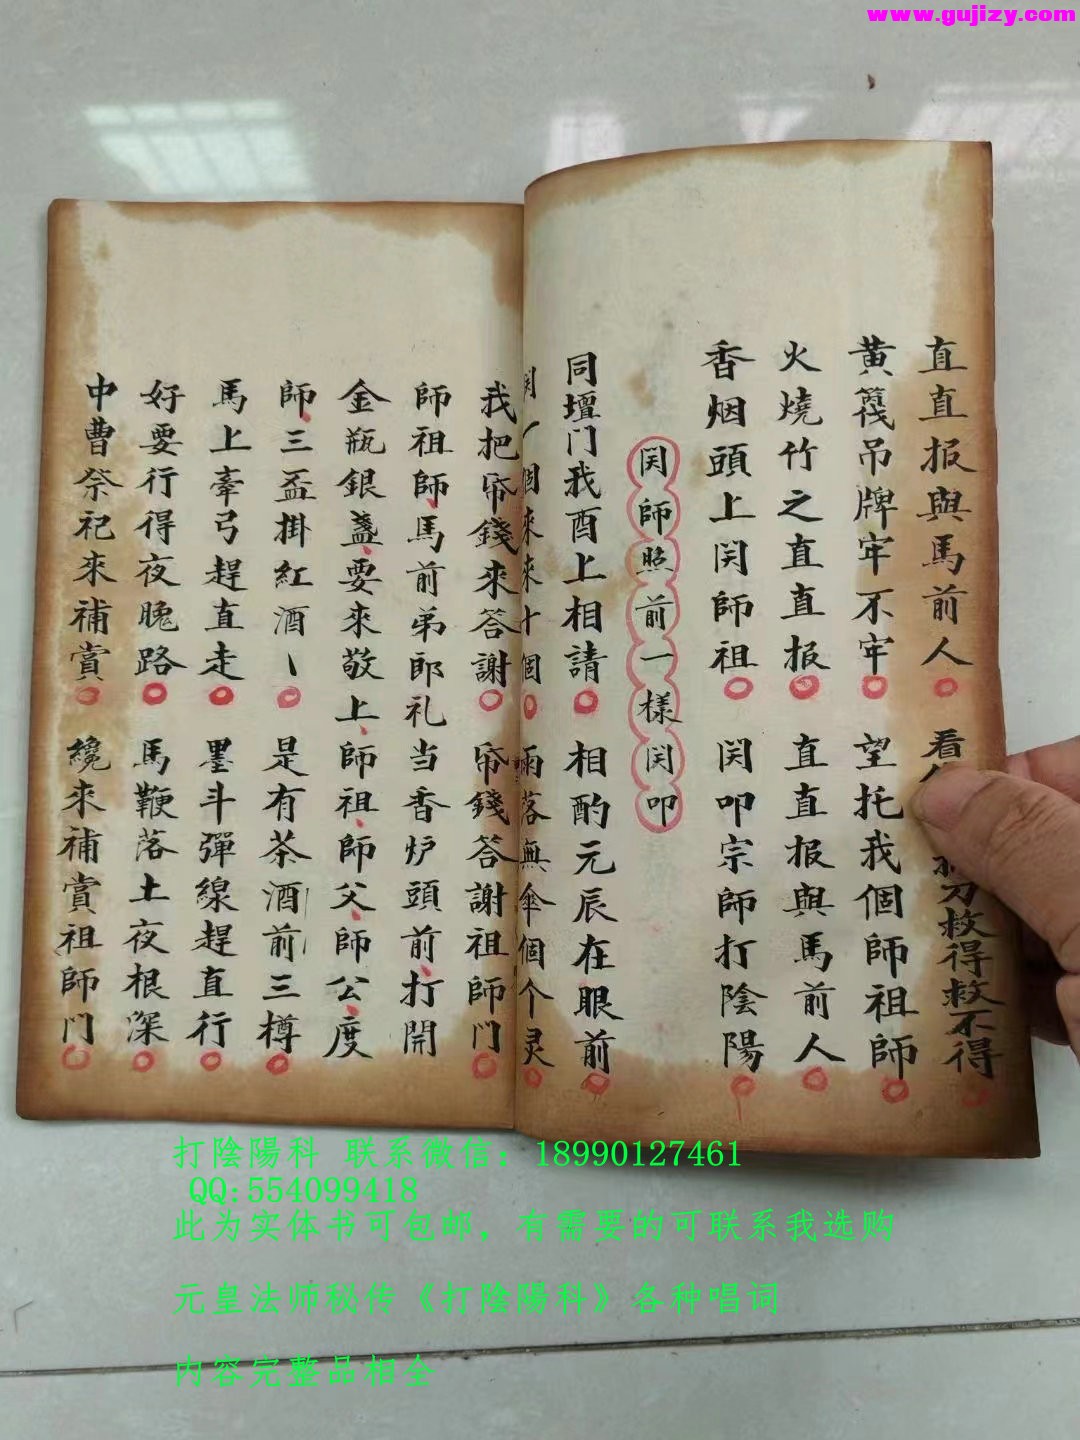 www.gujizy.com
直直报與馬前人 看 救得救不得
黄筏吊牌牢不牢 望托我個師祖師
火燒竹之直直报 直直报與馬前人
香烟頭上関師祖 関叩宗師打陰陽
関師照前一樣関叩
同壇门我酉上相請 相酌元辰在眼前
個來來十個 雨落無傘個个灵
我把帋錢來答謝 帋錢答謝祖師门
師祖師馬前弟郎礼当香炉頭前打開
金瓶銀盞要來敬上師祖師父師公度
師三盃掛紅酒 是有茶酒前三樽
馬上牽弓趕直走 墨斗彈線趕直行
好要行得夜晚路 馬鞭落土夜根深
中曹祭祀來補賞 纔來補賞祖師门
打陰陽科 联系微信：18990127461
QQ:554099418
此为实体书可包邮，有需要的可联系我选购
元皇法师秘传《打陰陽科》各种唱词
内容完整品相全